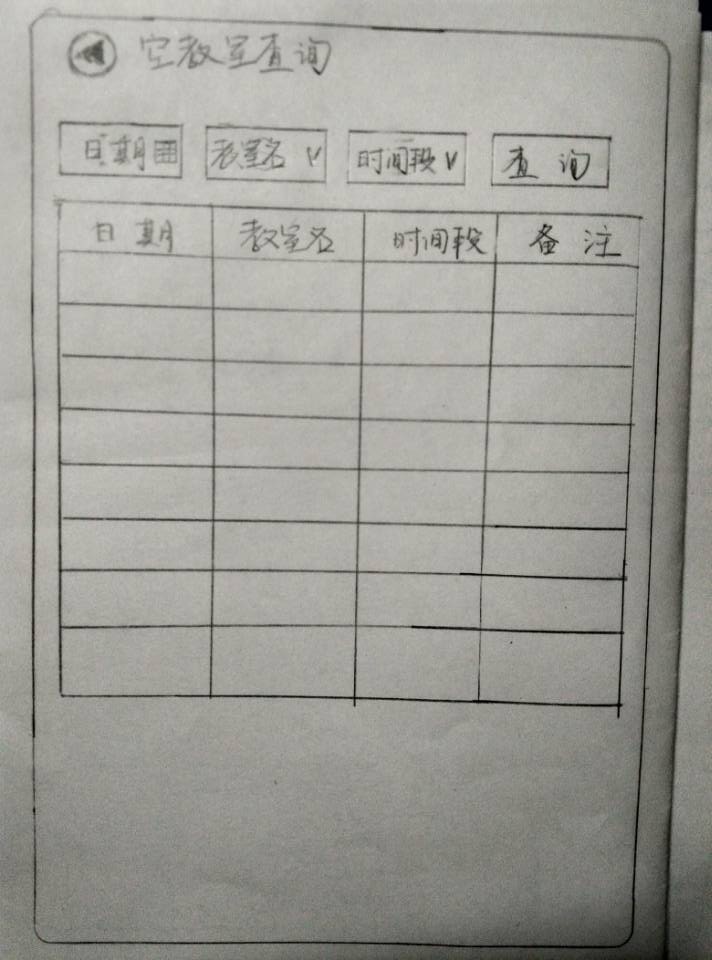 空教室查询
日期 教室名 V 时间段 V 查询
日期 教室名 时间段 备注